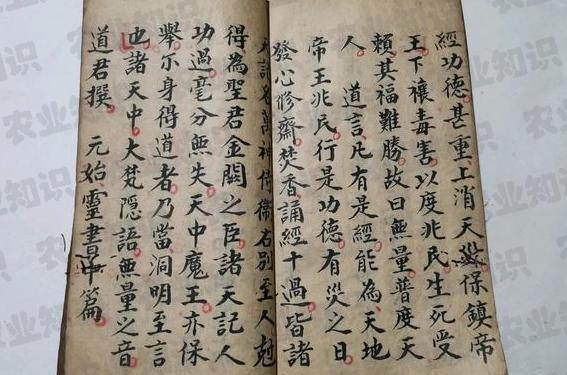 經功德甚重上消天災保鎮帝
王下禳毒害以度兆民生死受
賴其福難勝故曰無量普度天
人　道言凡有是經能為天地
帝王兆民行是功德有災之日
發心修齋焚香誦經十過皆諸
天記名萬神侍衛右別至人尅
得為聖君金闕之臣諸天記人
功過毫分無失天中魔王亦保
舉尒身得道者乃當洞明至言
也諸天中大梵隱語無量之音
道君撰　元始靈書中篇
农业知识